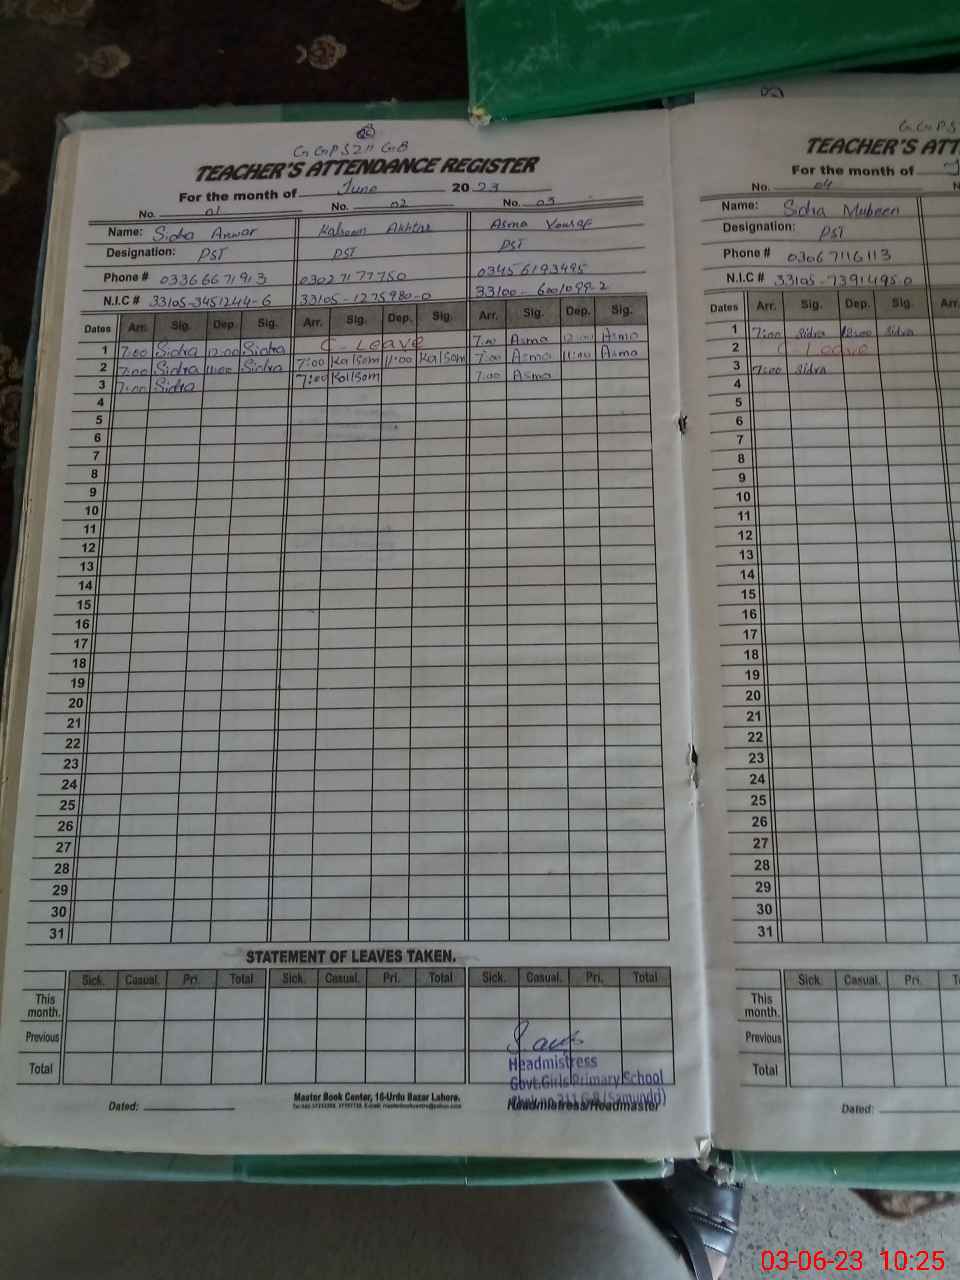 G GPS 211 GB
TEACHER'S ATTENDANCE REGISTER
For the month of June 2023
No. 01 No. 02 No. 03
Name: Sidra Anwar Kalsoom Akhtar Asma Yousaf
Designation: PST PST PST
Phone # 03366671913 03027177750 03456193495
N.I.C # 33105-3451244-6 33105-1275980-0 33100-6001099-2
Dates Arr. Sig. Dep. Sig. Arr. Sig. Dep. Sig. Arr. Sig. Dep. Sig.
1 7:00 Sidra 12:00 Sidra C-Leave 7:00 Asma 12:00 Asma
2 7:00 Sidra 11:00 Sidra 7:00 Kalsom 11:00 Kalsom 7:00 Asma 11:00 Asma
3 7:00 Sidra 7:00 Kalsom 7:00 Asma
4
5
6
7
8
9
10
11
12
13
14
15
16
17
18
19
20
21
22
23
24
25
26
27
28
29
30
31
STATEMENT OF LEAVES TAKEN.
Sick. Casual. Pri. Total Sick. Casual. Pri. Total Sick. Casual. Pri. Total
This
month.
Previous
Total
Headmistress
Govt.Girls Primary School
Chak no.211 G.B (Samundri)
Dated: Master Book Center, 16-Urdu Bazar Lahore. Headmistress/Headmaster
G.GPS
TEACHER'S ATT
For the month of
No. 04
Name: Sidra Mubeen
Designation: PST
Phone # 03067116113
N.I.C # 33105-7391495-0
Dates Arr. Sig. Dep. Sig. Arr.
1 7:00 Sidra 12:00 Sidra
2 C-Leave
3 7:00 Sidra
4
5
6
7
8
9
10
11
12
13
14
15
16
17
18
19
20
21
22
23
24
25
26
27
28
29
30
31
Sick. Casual. Pri.
This
month.
Previous
Total
Dated:
03-06-23 10:25